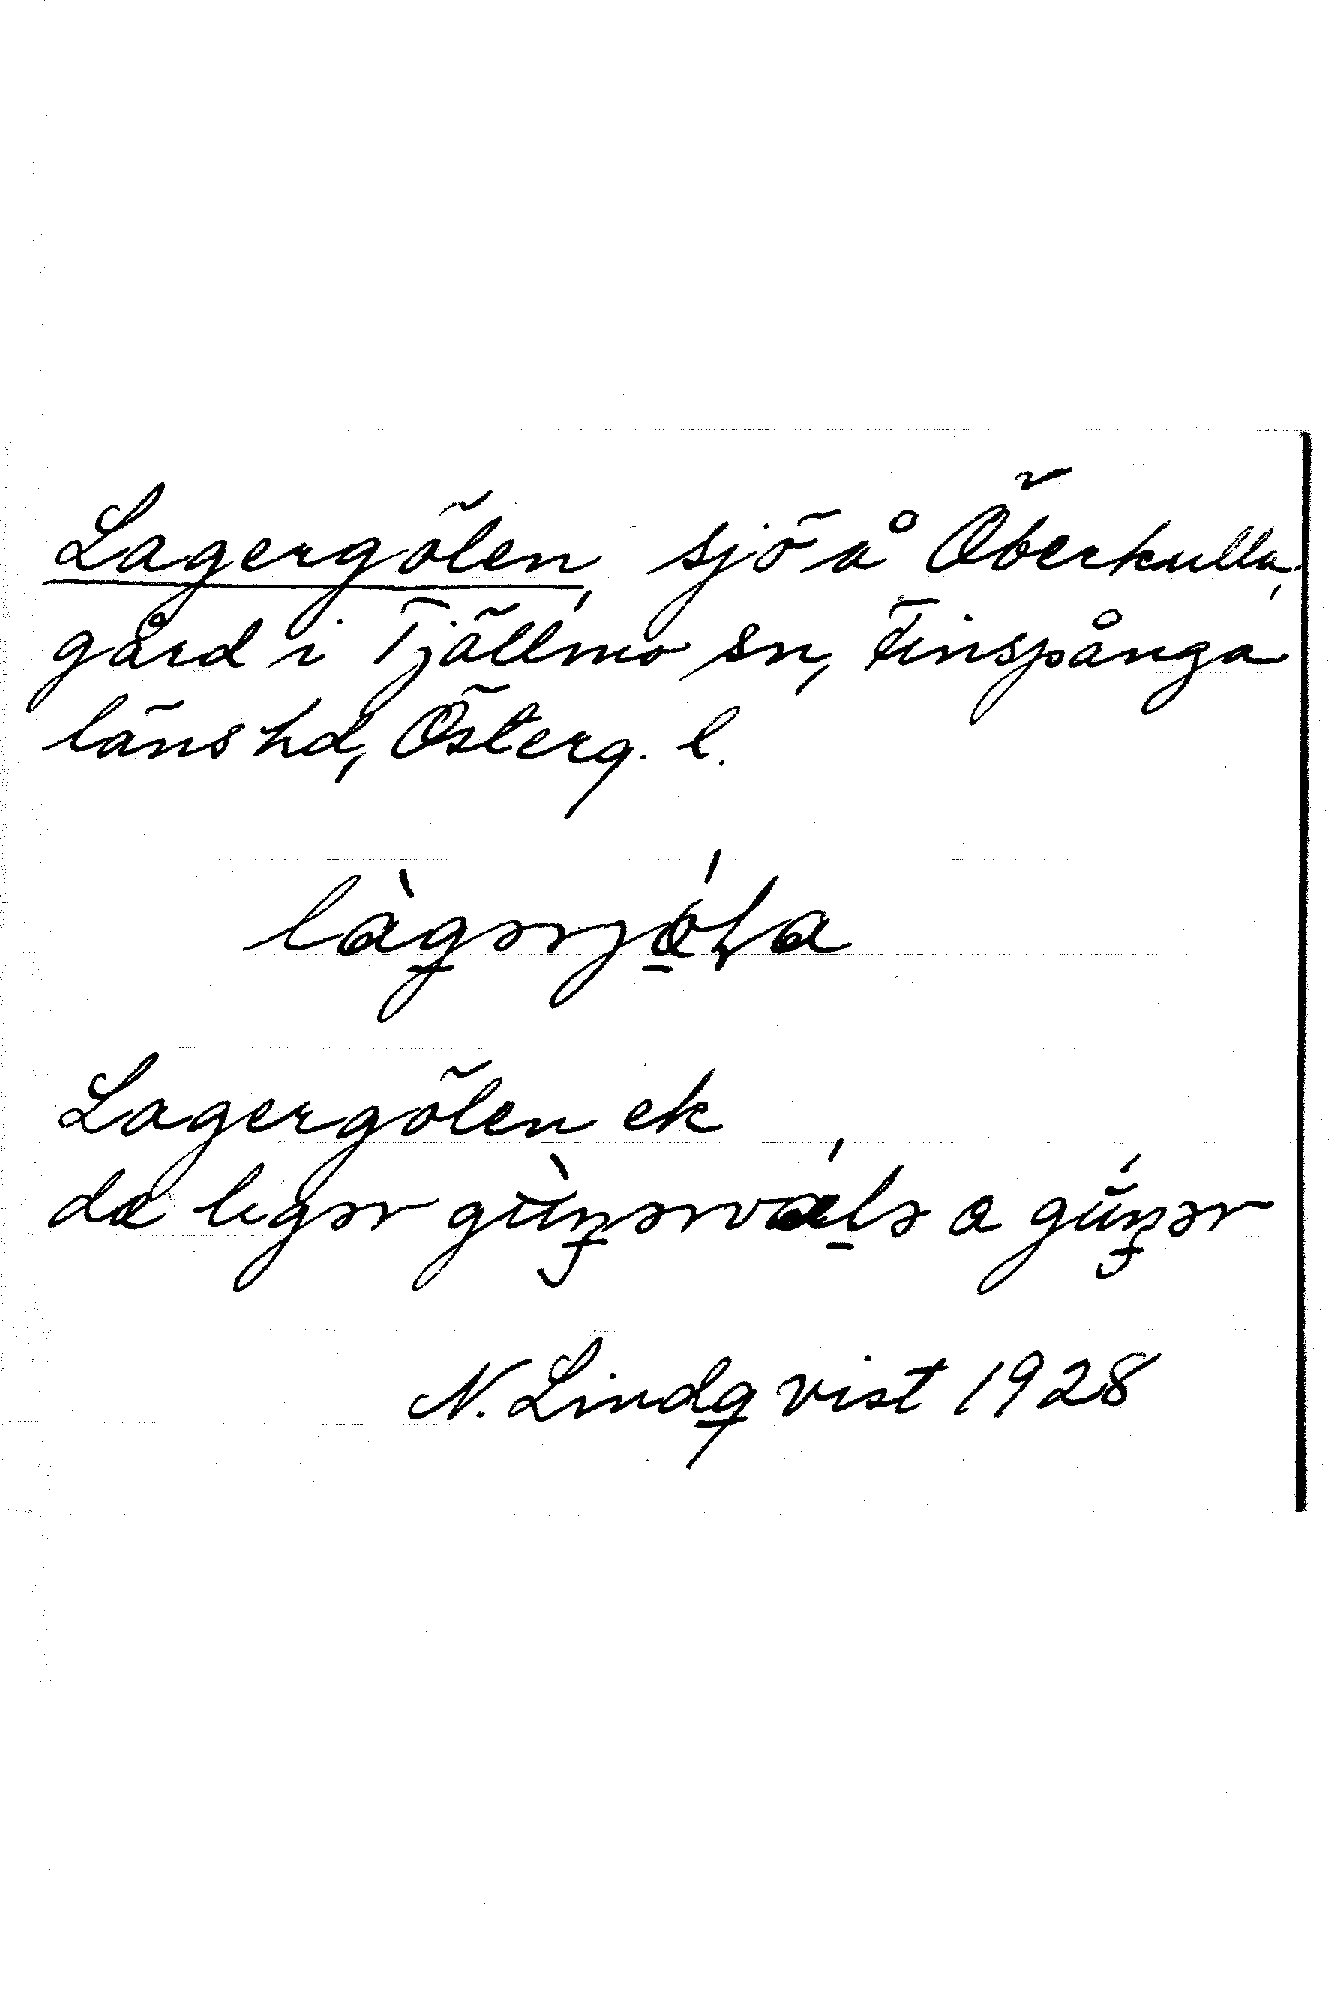 Lagergölen, sjö å Öberkulla,
gård i Tjällmo sn, Finspånga
läns hd, Österg. l.
làgərjǿⱡa
Lagergölen ek
dæ legər gùŋərvǽlə a gúŋər
N. Lindqvist 1928